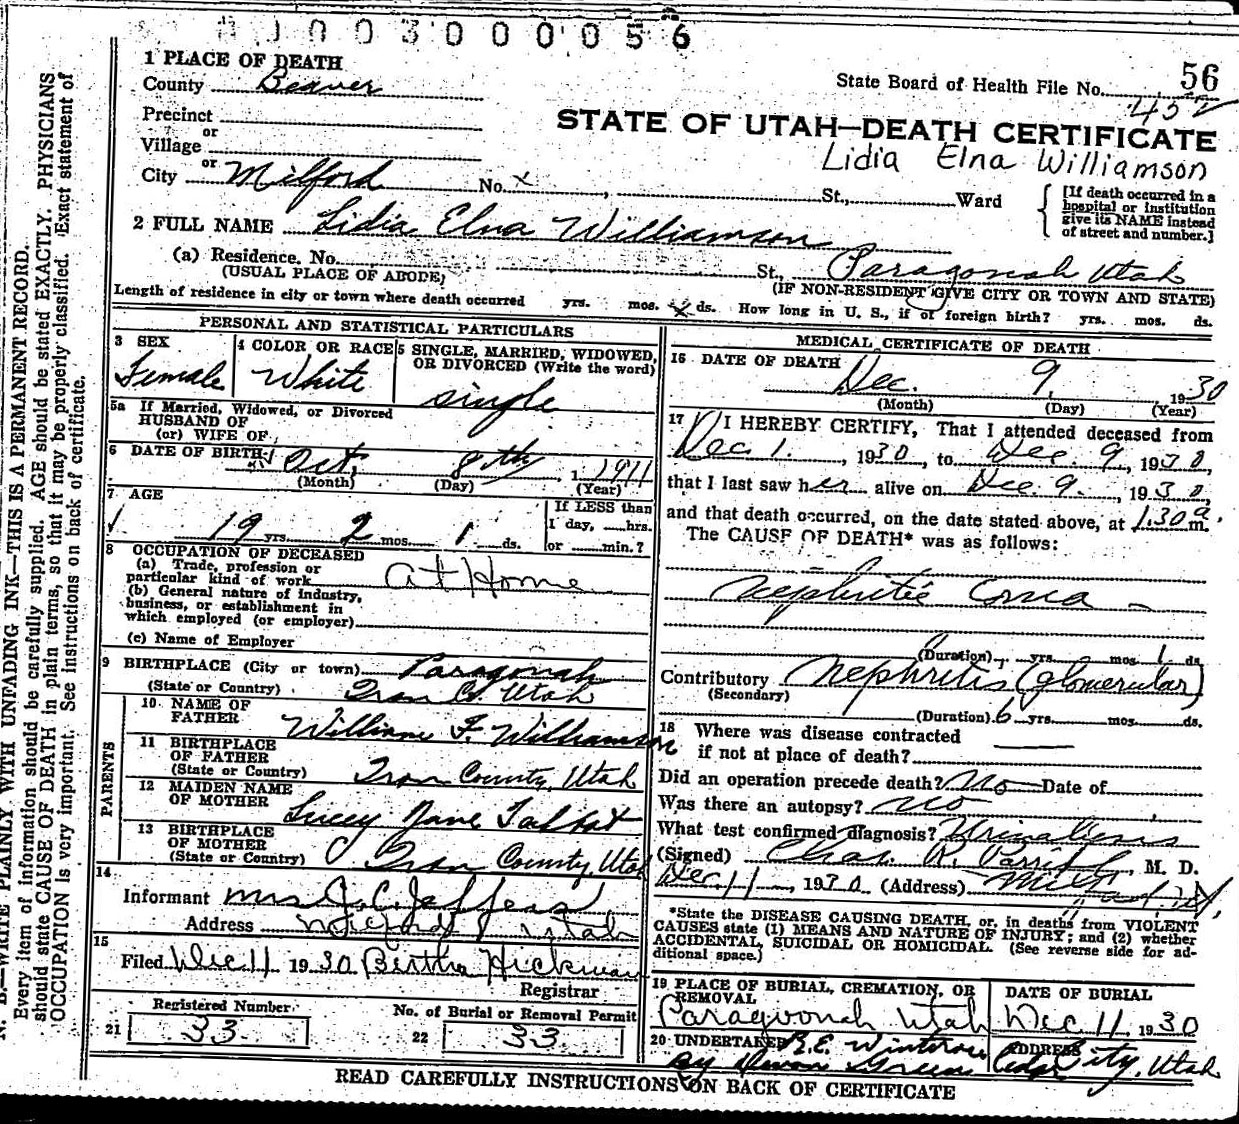 0003000056
1 PLACE OF DEATH
County Beaver
State Board of Health File No. 56
452
Precinct
or
Village
or
City Milford No. x St., Ward
STATE OF UTAH—DEATH CERTIFICATE
Lidia Elna Williamson
[If death occurred in a hospital or institution give its NAME instead of street and number.]
2 FULL NAME Lidia Elna Williamson
(a) Residence. No. St., Paragonah Utah
(USUAL PLACE OF ABODE) (IF NON-RESIDENT GIVE CITY OR TOWN AND STATE)
Length of residence in city or town where death occurred yrs. mos. ds. How long in U. S., if of foreign birth? yrs. mos. ds.
PERSONAL AND STATISTICAL PARTICULARS
3 SEX
Female
4 COLOR OR RACE
White
5 SINGLE, MARRIED, WIDOWED,
OR DIVORCED (Write the word)
single
5a If Married, Widowed, or Divorced
HUSBAND OF
(or) WIFE OF
6 DATE OF BIRTH Oct. 8th 1911
(Month) (Day) (Year)
7 AGE
19 yrs. 2 mos. 1 ds.
If LESS than
1 day, hrs.
or min.?
8 OCCUPATION OF DECEASED
(a) Trade, profession or
particular kind of work at Home
(b) General nature of industry,
business, or establishment in
which employed (or employer)
(c) Name of Employer
9 BIRTHPLACE (City or town) Paragonah
(State or Country) Iron Co. Utah
PARENTS
10 NAME OF
FATHER William F. Williamson
11 BIRTHPLACE
OF FATHER
(State or Country) Iron County, Utah
12 MAIDEN NAME
OF MOTHER Lucey Jane Talbot
13 BIRTHPLACE
OF MOTHER
(State or Country) Iron County, Utah
14
Informant Mrs J. C. Jeffers
Address Milford Utah
15
Filed Dec 11 1930 Bertha Hickman
Registrar
Registered Number
21 33
No. of Burial or Removal Permit
22 33
MEDICAL CERTIFICATE OF DEATH
16 DATE OF DEATH
Dec. 9, 1930
(Month) (Day) (Year)
17 I HEREBY CERTIFY, That I attended deceased from
Dec 1., 1930, to Dec. 9, 1930,
that I last saw her alive on Dec. 9., 1930,
and that death occurred, on the date stated above, at 1.30 a m.
The CAUSE OF DEATH* was as follows:
Nephritic Coma
(Duration) yrs. mos. 1 ds.
Contributory Nephritis (glomerular)
(Secondary)
(Duration) 6 yrs. mos. ds.
18 Where was disease contracted
if not at place of death?
Did an operation precede death? No Date of
Was there an autopsy? no
What test confirmed diagnosis?
(Signed) Chas. R. M. D.
Dec. 11, 1930 (Address)
*State the DISEASE CAUSING DEATH, or, in deaths from VIOLENT
CAUSES state (1) MEANS AND NATURE OF INJURY; and (2) whether
ACCIDENTAL, SUICIDAL OR HOMICIDAL. (See reverse side for ad-
ditional space.)
19 PLACE OF BURIAL, CREMATION, OR
REMOVAL
Paragoonah Utah
DATE OF BURIAL
Dec 11 1930
20 UNDERTAKER
By Green
ADDRESS
Cedar City, Utah
READ CAREFULLY INSTRUCTIONS ON BACK OF CERTIFICATE
N. B.—WRITE PLAINLY WITH UNFADING INK—THIS IS A PERMANENT RECORD.
Every item of information should be carefully supplied. AGE should be stated EXACTLY. PHYSICIANS
should state CAUSE OF DEATH in plain terms, so that it may be properly classified. Exact statement of
OCCUPATION is very important. See instructions on back of certificate.